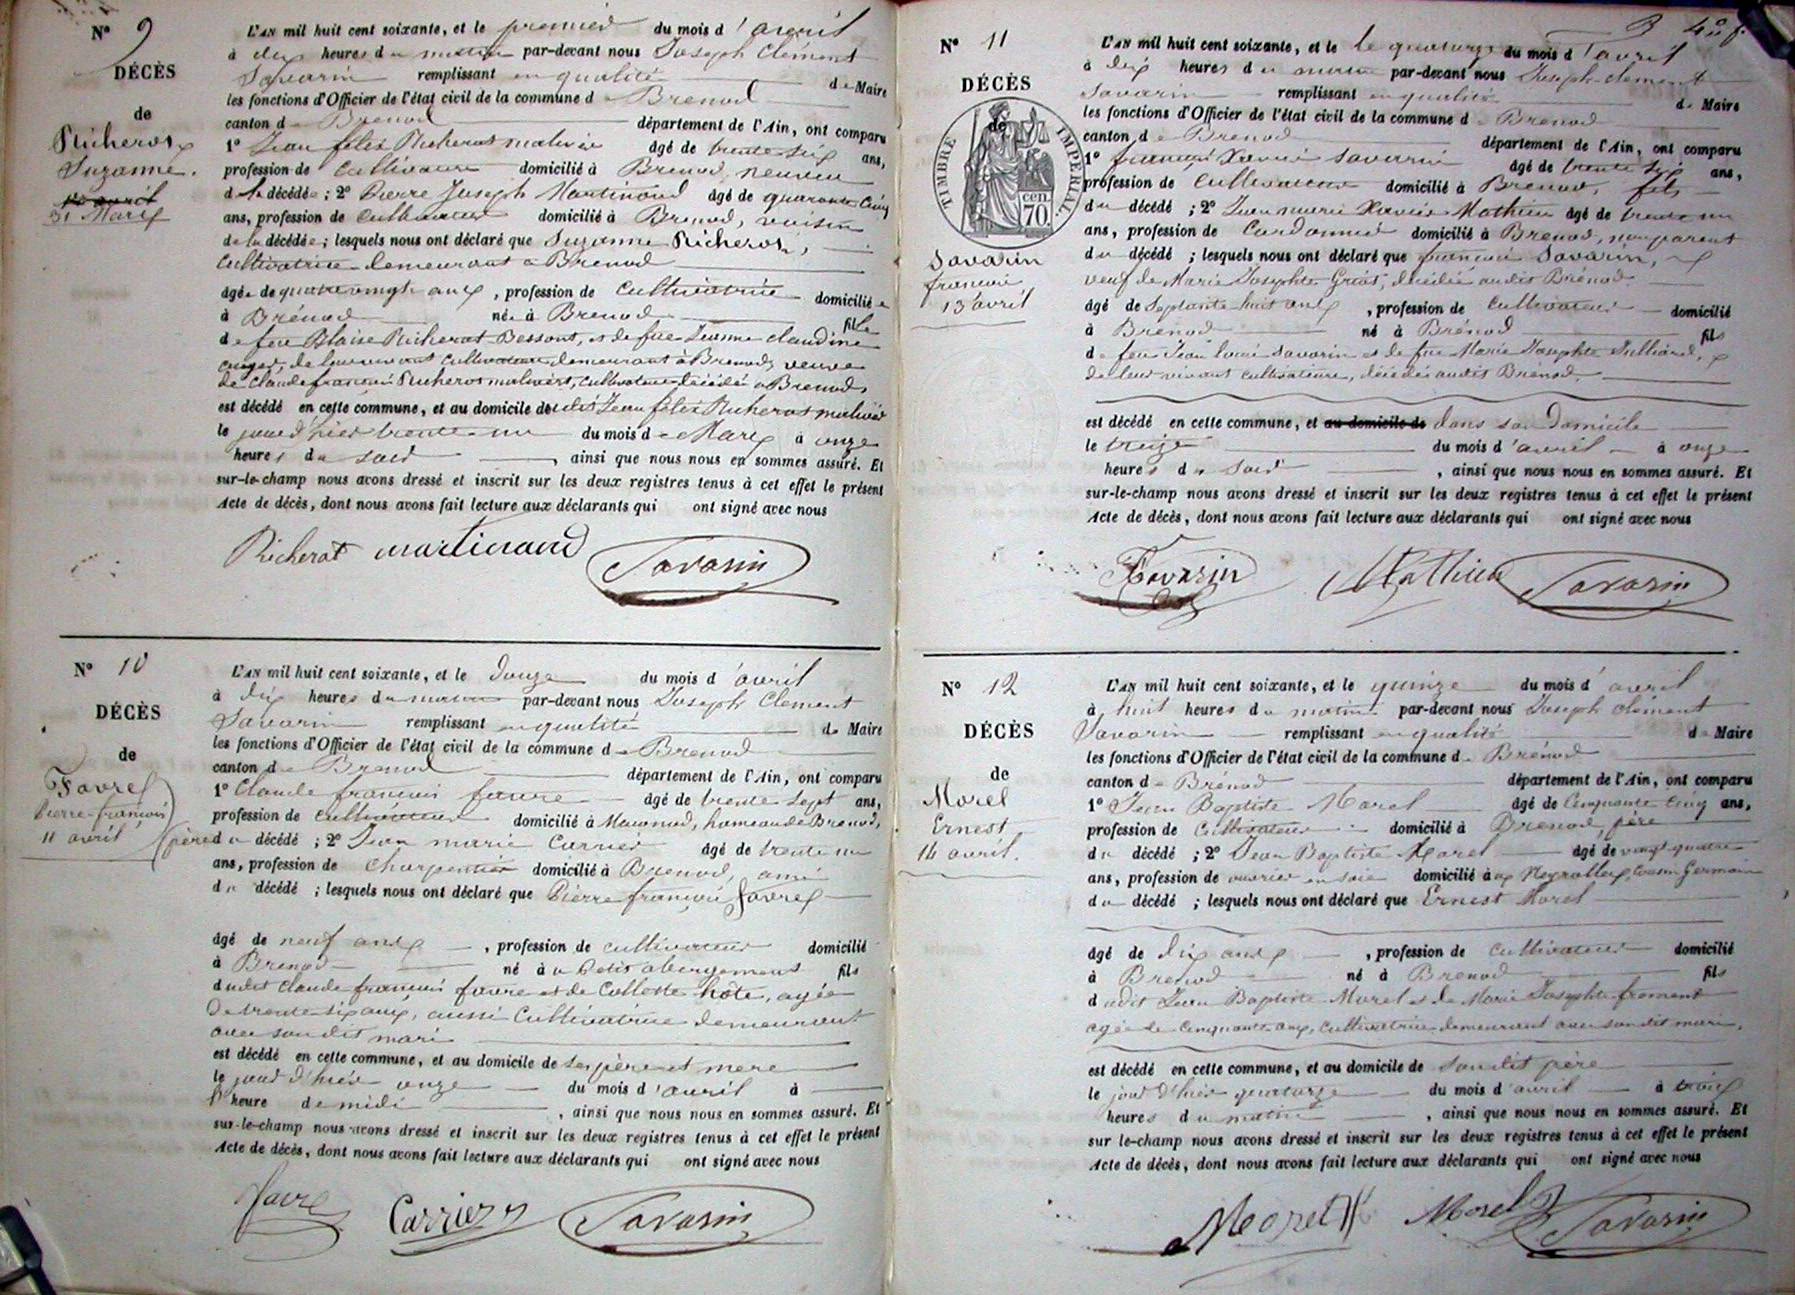 N° 9
DÉCÈS
de
Richerot
Suzanne.
1er avril
31 Mars
L'AN mil huit cent soixante, et le premier du mois d'avril
à dix heures du matin par-devant nous Joseph Clément
Savarin remplissant en qualité de Maire
les fonctions d'Officier de l'état civil de la commune de Brenod
canton de Brenod département de l'Ain, ont comparu
1° Jean félix Richerot âgé de trente six ans,
profession de cultivateur domicilié à Brenod, neveu
de la décédée ; 2° Pierre Joseph Martinand âgé de quarante cinq
ans, profession de cultivateur domicilié à Brenod, voisin
de la décédée ; lesquels nous ont déclaré que Suzanne Richerot,
cultivatrice demeurant à Brenod
âgée de quatre vingts ans, profession de cultivatrice domiciliée
à Brénod née à Brenod fille
de feu Blaise Richerot Bessont, et de feue Jeanne claudine
de leur vivant cultivateurs demeurant à Brenod, veuve
de Claude françois Richerot cultivateur décédé à Brenod,
est décédé en cette commune, et au domicile dudit Jean félix Richerot
le jour d'hier trente un du mois de Mars à onze
heures du soir , ainsi que nous nous en sommes assuré. Et
sur-le-champ nous avons dressé et inscrit sur les deux registres tenus à cet effet le présent
Acte de décès, dont nous avons fait lecture aux déclarants qui ont signé avec nous
Richerot martinand Savarin
N° 10
DÉCÈS
de
Favre
Pierre-françois
11 avril
L'AN mil huit cent soixante, et le douze du mois d'avril
à dix heures du matin par-devant nous Joseph Clément
Savarin remplissant en qualité de Maire
les fonctions d'Officier de l'état civil de la commune de Brenod
canton de Brenod département de l'Ain, ont comparu
1° Claude françois favre âgé de trente sept ans,
profession de cultivateur domicilié à Macconod, hameau de Brenod,
(père du décédé ; 2° Jean marie Carrier âgé de trente un
ans, profession de Charpentier domicilié à Brenod, ami
du décédé ; lesquels nous ont déclaré que Pierre françois favre
âgé de neuf ans , profession de cultivateur domicilié
à Brenod né à u Petit abergement fils
dudit Claude françois favre et de Collette hôte, agée
de trente six ans, aussi cultivatrice demeurant
avec son dit mari
est décédé en cette commune, et au domicile de ses père et mere
le jour d'hier onze du mois d'avril à
l'heure de midi , ainsi que nous nous en sommes assuré. Et
sur-le-champ nous avons dressé et inscrit sur les deux registres tenus à cet effet le présent
Acte de décès, dont nous avons fait lecture aux déclarants qui ont signé avec nous
favre Carrier Savarin
3
N° 11
DÉCÈS
de
TIMBRE IMPÉRIAL.
70 cen.
Savarin
francois
13 avril
L'AN mil huit cent soixante, et le le quatorze du mois d'avril
à dix heures du matin par-devant nous Joseph clement
Savarin remplissant en qualité de Maire
les fonctions d'Officier de l'état civil de la commune de Brenod
canton de Brenod département de l'Ain, ont comparu
1° françois Xavier Savarin âgé de trente six ans,
profession de cultivateur domicilié à Brenod, fils
du décédé ; 2° Jean marie Xavier Mathieu âgé de trente un
ans, profession de Cordonnier domicilié à Brenod, non parent
du décédé ; lesquels nous ont déclaré que françois Savarin,
veuf de Marie Josephte Griot, décédée audit Brénod
âgé de Septante huit ans , profession de cultivateur domicilié
à Brenod né à Brénod fils
de feu Jean Louis Savarin et de feue Marie Josephte Julliard,
de leur vivant cultivateurs, décédés audit Brenod.
est décédé en cette commune, et au domicile de dans son Domicile
le treize du mois d'avril à onze
heures du soir , ainsi que nous nous en sommes assuré. Et
sur-le-champ nous avons dressé et inscrit sur les deux registres tenus à cet effet le présent
Acte de décès, dont nous avons fait lecture aux déclarants qui ont signé avec nous
Savarin Mathieu Savarin
N° 12
DÉCÈS
de
Morel
Ernest
14 avril.
L'AN mil huit cent soixante, et le quinze du mois d'avril
à huit heures du matin par-devant nous Joseph clément
Savarin remplissant en qualité de Maire
les fonctions d'Officier de l'état civil de la commune de Brénod
canton de Brénod département de l'Ain, ont comparu
1° Jean Baptiste Morel âgé de Cinquante cinq ans,
profession de Cultivateur domicilié à Brenod, père
du décédé ; 2° Jean Baptiste Morel âgé de vingt quatre
ans, profession de ouvrier en soie domicilié à aux Neyrolles, Germain
du décédé ; lesquels nous ont déclaré que Ernest Morel
âgé de dix ans , profession de cultivateur domicilié
à Brenod né à Brenod fils
dudit Jean Baptiste Morel et de Marie Josephte froment
agée de cinquante ans, cultivatrice demeurant avec son dit mari.
est décédé en cette commune, et au domicile de son dit père
le jour d'hier quatorze du mois d'avril à trois
heures du matin , ainsi que nous nous en sommes assuré. Et
sur le-champ nous avons dressé et inscrit sur les deux registres tenus à cet effet le présent
Acte de décès, dont nous avons fait lecture aux déclarants qui ont signé avec nous
Morel Morel Savarin